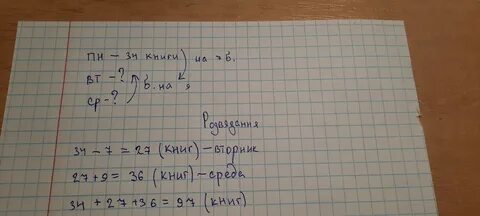 ПН – 34 книги на 7 б.
ВТ – ?
б. на 9
Ср – ?
Розвязання
34 – 7 = 27 (книг) – вторник
27 + 9 = 36 (книг) – среда
34 + 27 + 36 = 97 (книг)